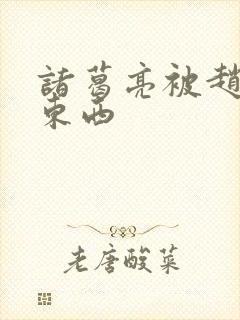 諸葛亮被趙
東西
老唐酸菜